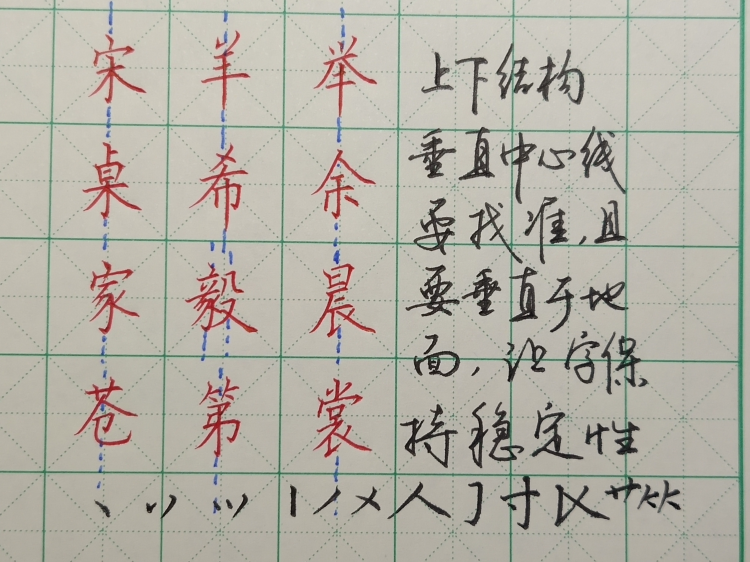 宋 羊 举
桌 希 余
家 毅 晨
苍 第 裳
上下结构
垂直中心线
要找准,且
要垂直于地
面,让字保
持稳定性
丶 丷 ⺌ 丨 丿 乂 人 亅 寸 艹 ⺮